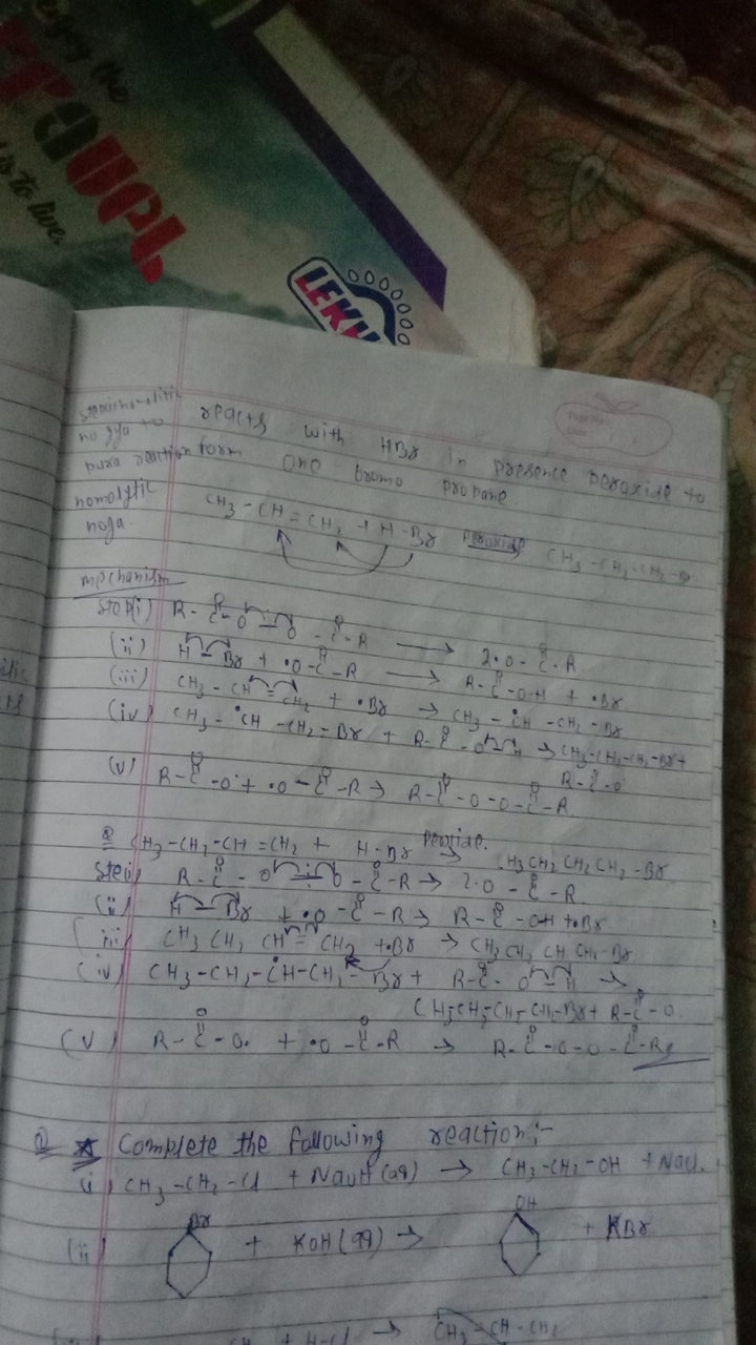 is to live.
LEKH
reacts with HBr in presence peroxide to
form one bromo propane
homolytic
hoga.
CH3-CH=CH2 + H-Br peroxide CH3-CH2-CH2-B
mechanism
Step(i) R-C-O-O-C-R → 2·O-C-R
(ii) H-Br + ·O-C-R → R-C-O-H + ·Br
(iii) CH3-CH=CH2 + ·Br → CH3-ĊH-CH2-Br
(iv) CH3-ĊH-CH2-Br + R-C-O-H → CH3-CH2-CH2-Br +
R-C-O
(v) R-C-O· + ·O-C-R → R-C-O-O-C-R
Q CH3-CH2-CH=CH2 + H-Br peroxide. → CH3CH2CH2CH2-Br
Stei) R-C-O-O-C-R → 2·O-C-R
(ii) H-Br + ·O-C-R → R-C-OH + ·Br
(iii) CH3 CH2 CH=CH2 + ·Br → CH3CH2 CH CH2-Br
(iv) CH3-CH2-ĊH-CH2-Br + R-C-O-H →
CH3-CH2-CH2-CH2-Br + R-C-O.
(v) R-C-O· + ·O-C-R → R-C-O-O-C-R
Q * Complete the following reaction:-
(i) CH3-CH2-Cl + NaOH(aq) → CH3-CH2-OH + NaCl.
(ii) Br + KOH(aq) → OH + KBr
+ H-Cl → CH3-CH-CH2